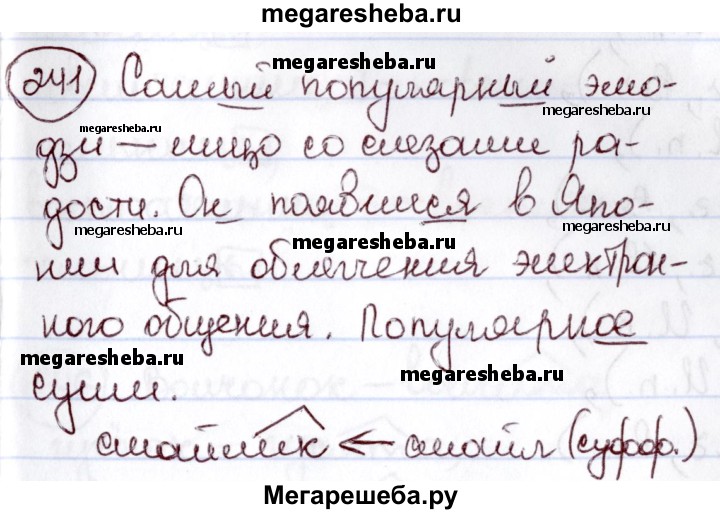 megaresheba.ru
megaresheba.ru
241 Самый популярный эмо-
megaresheba.ru
дзи — лицо со слезами ра-
дости. Он появился в Япо-
megaresheba.ru megaresheba.ru megaresheba.ru
нии для облегчения электрон-
ного общения. Популярное
megaresheba.ru megaresheba.ru
суши.
смайлик ← смайл (суфф.)
Мегарешеба.ру